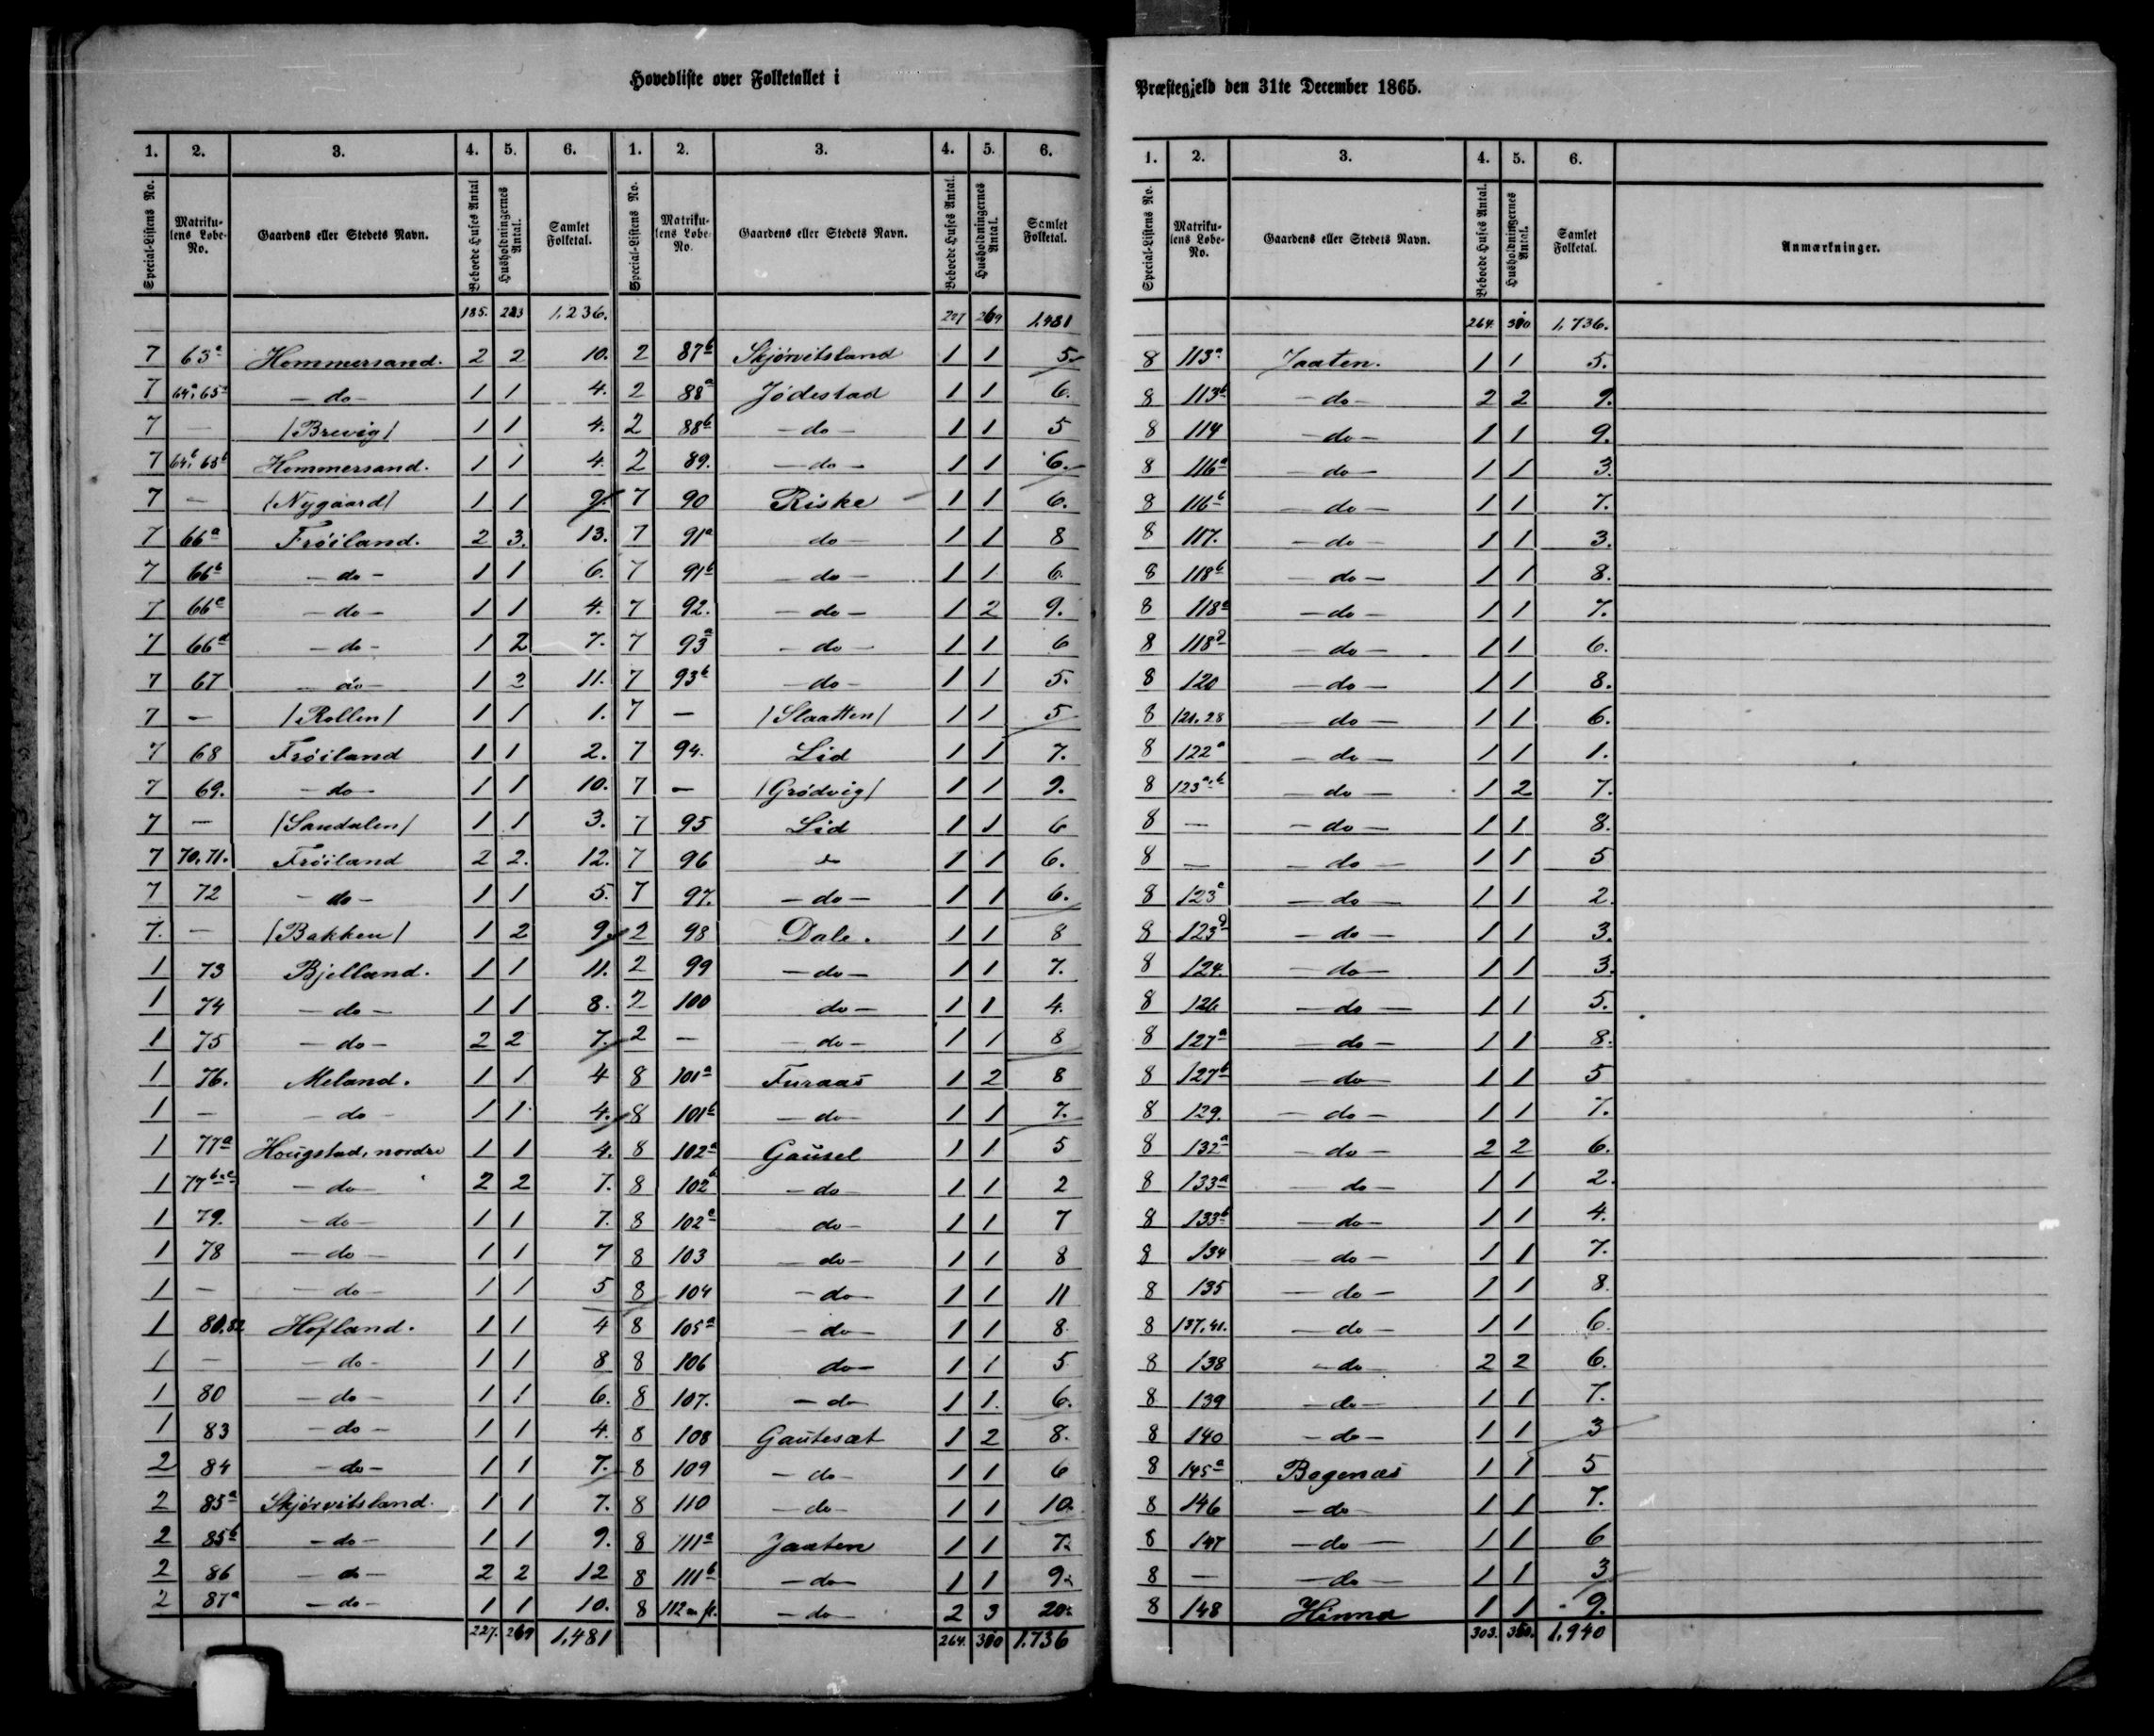 Hovedliste over Folketallet i
1. 2. 3. 4. 5. 6. 1. 2. 3. 4. 5. 6.
Special-Listens No. Matriku-lens Løbe-No. Gaardens eller Stedets Navn. Beboede Huses Antal Husholdningernes Antal. Samlet Folketal. Special-Listens No. Matriku-lens Løbe-No. Gaardens eller Stedets Navn. Beboede Huses Antal. Husholdningernes Antal. Samlet Folketal.
185. 1,236. 227 269 1,481
7 63a Hommersand. 2 2 10. 2 87b Skjørvitsland 1 1 5.
7 64a, 65a - do - 1 1 4. 2 88a Jødestad 1 1 6.
7 - /Brevig/ 1 1 4. 2 88b - do - 1 1 5
7 64b, 65b Hommersand. 1 1 4. 2 89. - do - 1 1 6.
7 - /Nygaard/ 1 1 9. 7 90 Riske 1 1 6.
7 66a Frøiland. 2 3. 13. 7 91a do - 1 1 8
7 66b - do - 1 1 6. 7 91b - do - 1 1 6.
7 66c - do - 1 1 4. 7 92. - do - 1 2 9.
7 66d - do - 1 2 7. 7 93a - do - 1 1 6
7 67 - do - 1 2 11. 7 93b - do - 1 1 5.
7 - /Rollen/ 1 1 1. 7 - /Slaatten/ 1 1 5
7 68 Frøiland 1 1 2. 7 94. Lid 1 1 7.
7 69. - do - 1 1 10. 7 - /Grødvig/ 1 1 9.
7 - /Sandalen/ 1 1 3. 7 95 Lid 1 1 6
7 70, 71. Frøiland 2 2. 12. 7 96 do 1 1 6.
7 72 - do - 1 1 5. 7 97. - do - 1 1 6.
7. - /Bakken/ 1 2 9. 2 98 Dale. 1 1 8
1 73 Bjelland. 1 1 11. 2 99 - do - 1 1 7.
1 74 - do - 1 1 8. 2 100 do - 1 1 4.
1 75 - do - 2 2 7. 2 - - do - 1 1 8
1 76. Meland. 1 1 4 8 101a Furaas 1 2 8
1 - - do - 1 1 4. 8 101b - do - 1 1 7.
1 77a Hougstad, nordre 1 1 4. 8 102a Gausel 1 1 5
1 - do - 2 2 7. 8 102b - do - 1 1 2
1 79. - do - 1 1 7. 8 102c do - 1 1 7
1 78 - do - 1 1 7 8 103 - do - 1 1 8
1 - - do - 1 1 5 8 104 - do - 1 1 11
1 Hofland. 1 1 4 8 105a - do - 1 1 8
1 - - do - 1 1 8 8 106 do - 1 1 5
1 80 - do - 1 1 6. 8 107. - do 1 1. 6.
1 83 - do - 1 1 4. 8 108 Gautesæt 1 2 8.
2 84 - do - 1 1 7. 8 109 - do - 1 1 6
2 85a Skjørvitsland. 1 1 7. 8 110 - do - 1 1 10.
2 85b - do - 1 1 9. 8 111a Jaaten 1 1 7.
2 86 - do - 2 2 12 8 111b - do - 1 1 9.
2 87a - do - 1 1 10. 8 112 m fl. - do - 2 3 20.
227. 269 1,481 264. 310 1,736
Præstegjeld den 31te December 1865.
1. 2. 3. 4. 5. 6.
Special-Listens No. Matriku-lens Løbe-No. Gaardens eller Stedets Navn. Beboede Huses Antal. Husholdningernes Antal. Samlet Folketal. Anmærkninger.
264. 310 1,736.
8 113a Jaaten. 1 1 5.
8 113b - do - 2 2 9.
8 114 - do - 1 1 9.
8 116a - do - 1 1 3.
8 116b - do - 1 1 7.
8 117. - do - 1 1 3.
8 118b - do - 1 1 8.
8 118a - do - 1 1 7.
8 118d - do - 1 1 6.
8 120 - do - 1 1 8.
8 121, 28 - do - 1 1 6.
8 122a - do - 1 1 1.
8 123a, b - do - 1 2 7.
8 - - do - 1 1 8.
8 - - do - 1 1 5
8 123c - do - 1 1 2.
8 123d - do - 1 1 3.
8 124. - do - 1 1 3.
8 126 - do - 1 1 5.
8 127a - do - 1 1 8.
8 127b - do - 1 1 5
8 129. - do - 1 1 7.
8 132a - do - 2 2 6.
8 133a - do - 1 1 2.
8 133b - do - 1 1 4.
8 134 - do - 1 1 7.
8 135 - do - 1 1 8.
8 137, 41. - do - 1 1 6.
8 138 - do 2 2 6.
8 139 - do - 1 1 7.
8 140 - do - 1 1 3
8 145a Bogenæs 1 1 5
8 146 - do 1 1 7.
8 147 - do - 1 1 6
8 - - do - 1 1 3
8 148 Hinna 1 1 9.
303. 1,940